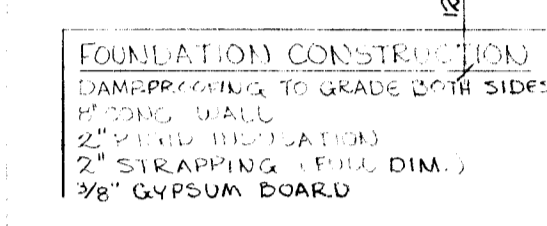 FOUNDATION CONSTRUCTION
DAMPPROOFING TO GRADE BOTH SIDES
8" CONC WALL
2" RIGID INSULATION
2" STRAPPING (FULL DIM.)
3/8" GYPSUM BOARD